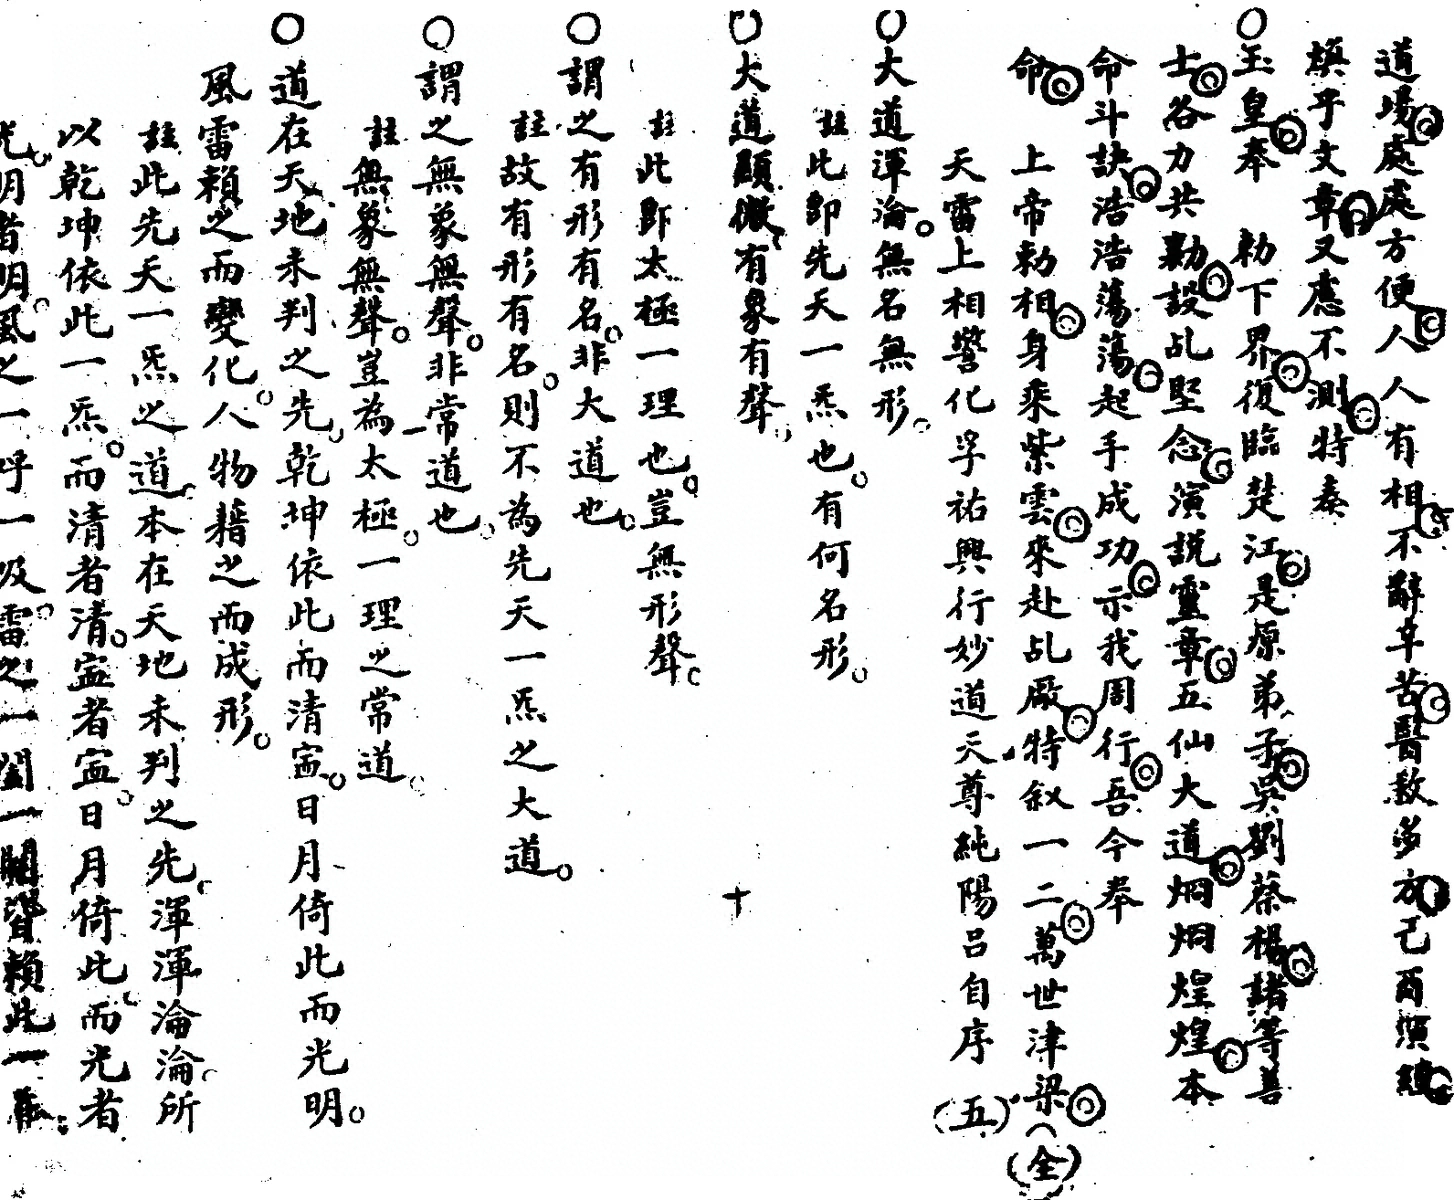 道場處處方便人人有相不辭辛苦醫教多方己酉演
槙乎文章又慮不測特奏
玉皇奉　勅下界復臨楚江是原弟子吳劉蔡楊諸等善
士各力共勷設乩堅念演說靈章五仙大道炯炯煌煌本
命斗訣浩浩蕩蕩起手成功示我周行吾今奉
命　上帝勅相身乘紫雲來赴乩廠特叙一二萬世津梁（全）
天雷上相警化孚祐興行妙道天尊純陽吕自序（五）
○大道渾淪無名無形
註此即先天一炁也有何名形
○大道顯微有象有聲　十
註此即太極一理也豈無形聲
○謂之有形有名非大道也
註故有形有名則不為先天一炁之大道
○謂之無象無聲非常道也
註無象無聲豈為太極一理之常道
○道在天地未判之先乾坤依此而清寍日月倚此而光明
風雷賴之而變化人物藉之而成形
註此先天一炁之道本在天地未判之先渾渾淪淪所
以乾坤依此一炁而清者清寍者寍日月倚此而光者
光明者明風之一呼一吸雷之一闔一闢聲賴此一